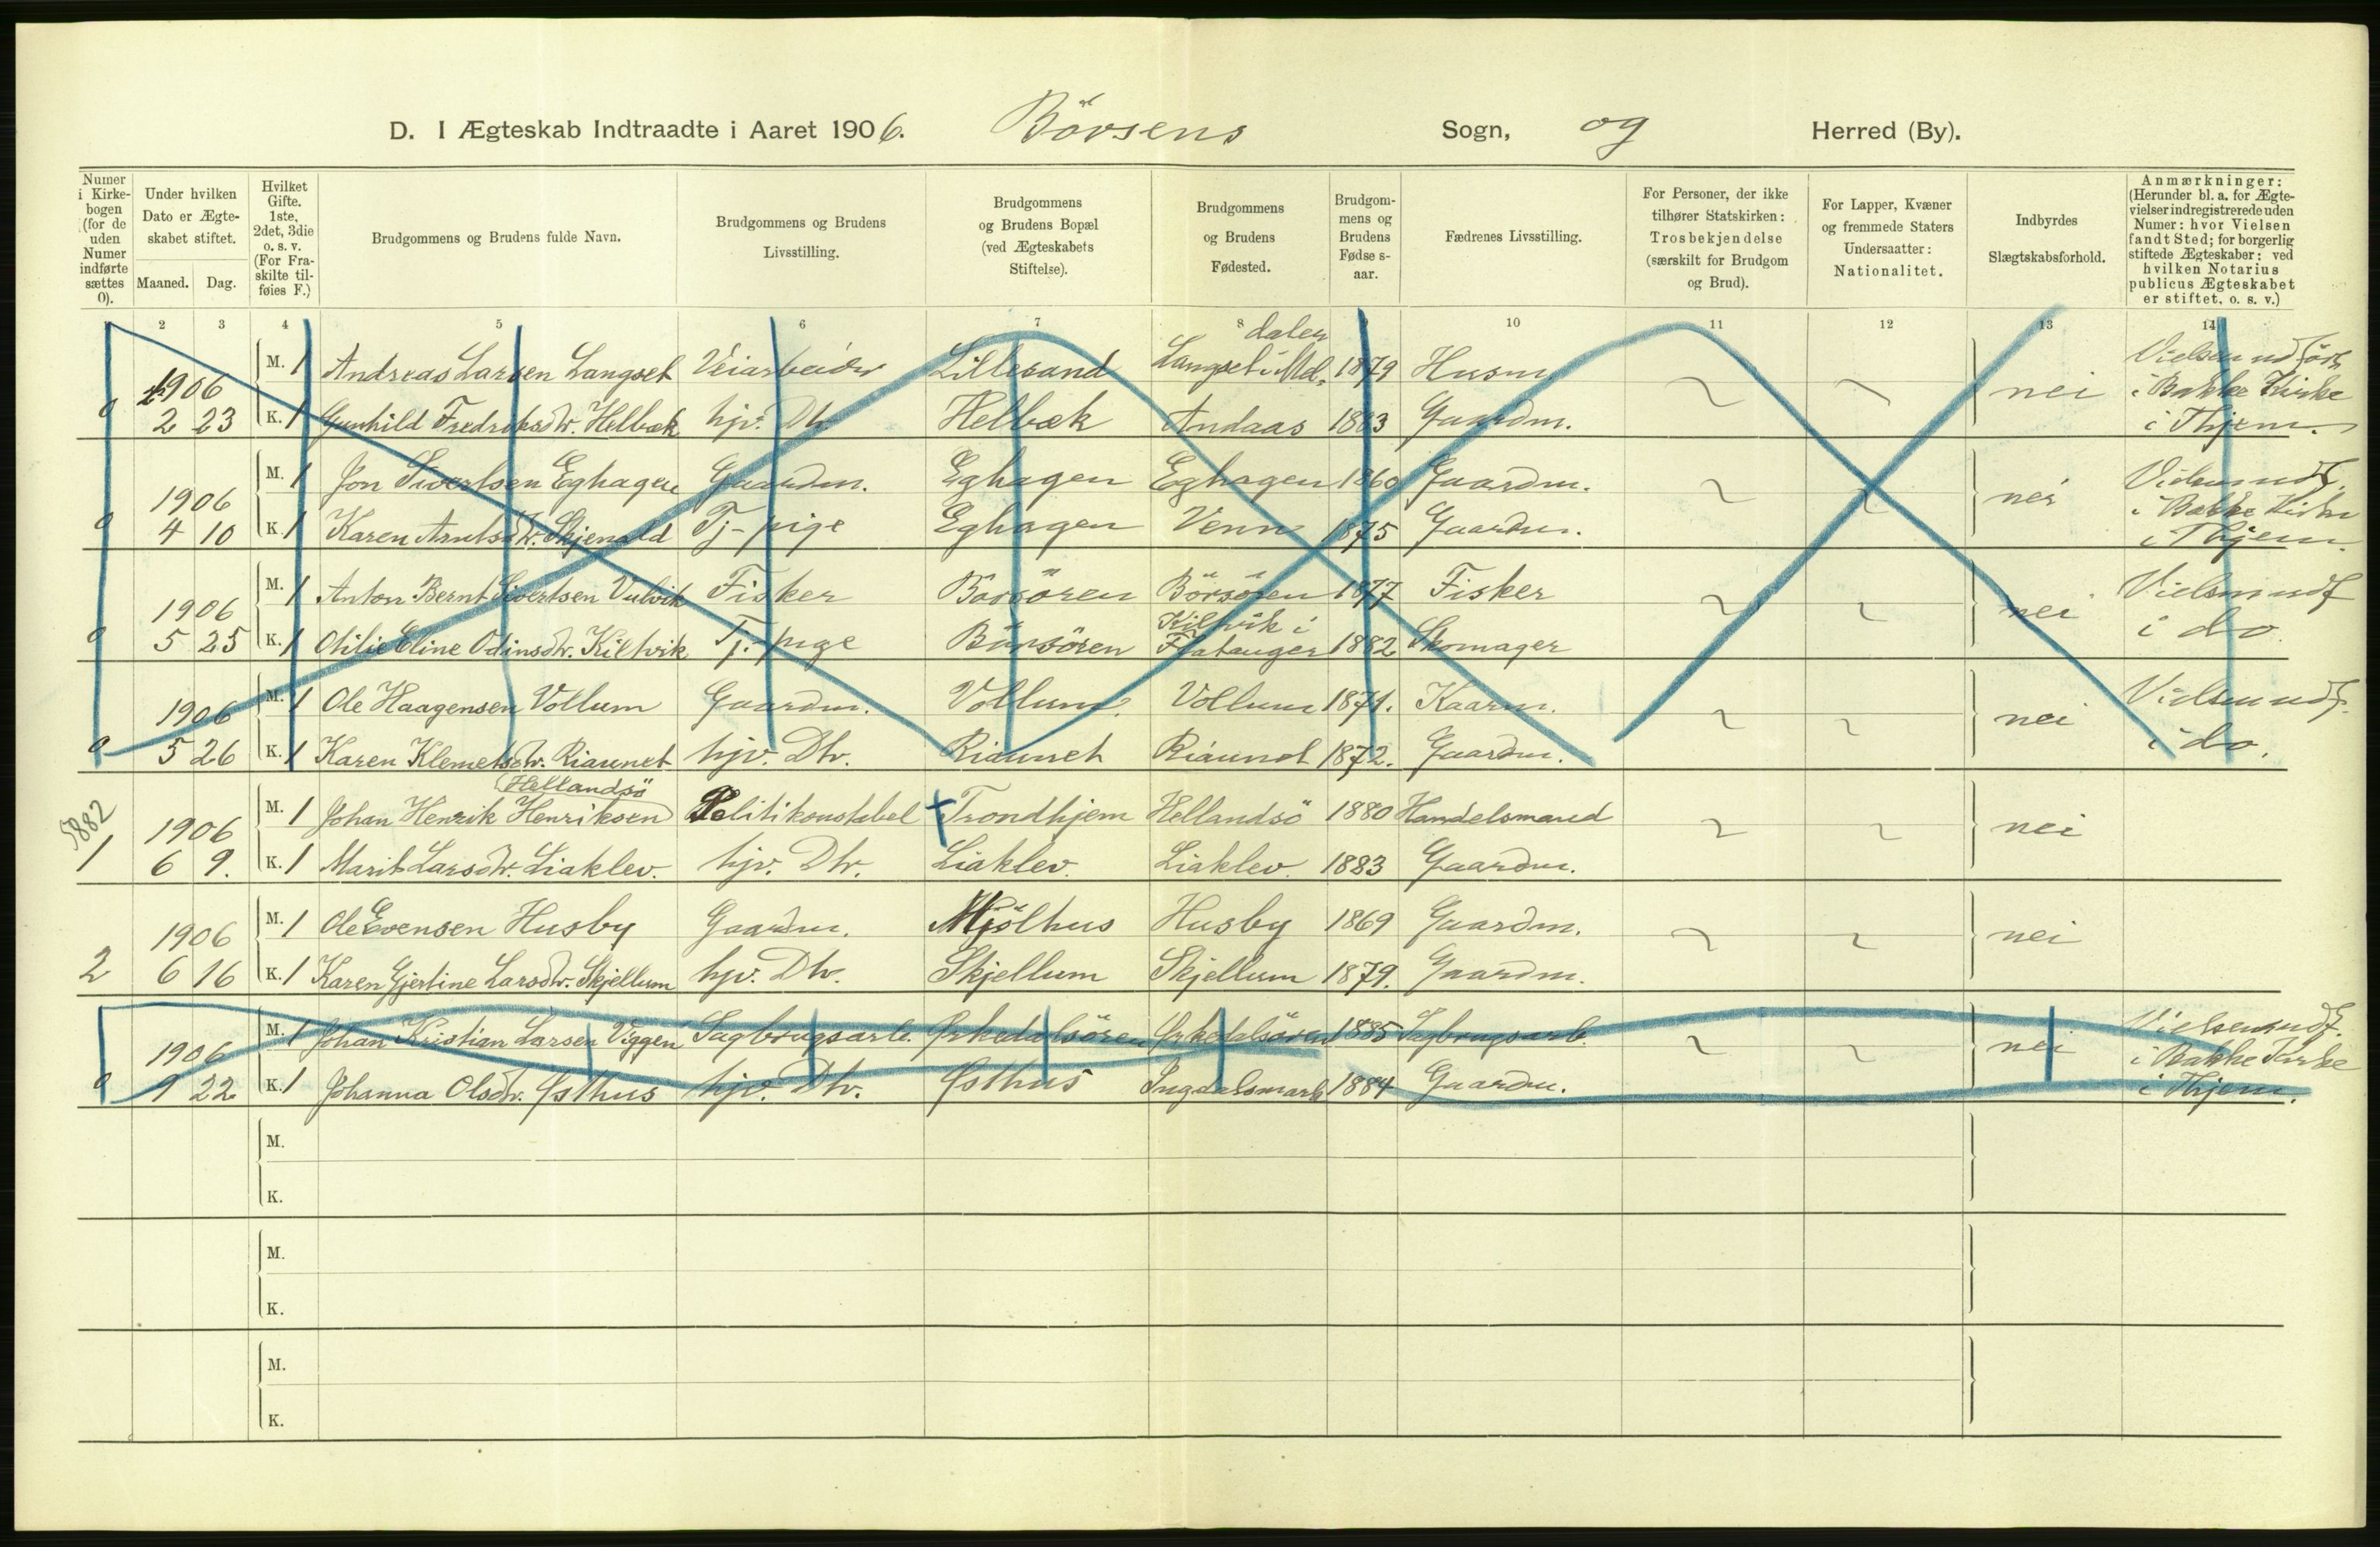 D. I Ægteskab Indtraadte i Aaret 1906. Börsens Sogn, og Herred (By).
Numer i Kirke-bogen (for de uden Numer indførte sættes 0).
Under hvilken Dato er Ægte-skabet stiftet.
Maaned. Dag.
Hvilket Gifte. 1ste, 2det, 3die o. s. v. (For Fra-skilte til-føies F.)
Brudgommens og Brudens fulde Navn.
Brudgommens og Brudens Livsstilling.
Brudgommens og Brudens Bopæl (ved Ægteskabets Stiftelse).
Brudgommens og Brudens Fødested.
Brudgom-mens og Brudens Fødse s-aar.
Fædrenes Livsstilling.
For Personer, der ikke tilhører Statskirken: Trosbekjendelse (særskilt for Brudgom og Brud).
For Lapper, Kvæner og fremmede Staters Undersaatter: Nationalitet.
Indbyrdes Slægtskabsforhold.
Anmærkninger: (Herunder bl. a. for Ægte-vielser indregistrerede uden Numer: hvor Vielsen fandt Sted; for borgerlig stiftede Ægteskaber: ved hvilken Notarius publicus Ægteskabet er stiftet, o. s. v.)
2 3 4 5 6 7 8 10 11 12 13 14
M. 1 Andreas Larsen Langset Veiarbeider Lillesand Langset i Meldalen 1879 Husm. nei Vielsen udført
1906
0 2 23 K. 1 Gunhild Fredriksdtr. Helbæk hjv. Dtr. Helbæk Andaas 1883 Gaardm. i Bakke Kirke i Thjem.
M. 1 Jon Sivertsen Eghagen Gaardm. Eghagen Eghagen 1860 Gaardm. nei Vielsen udf.
1906
0 4 10 K. 1 Karen Arntsdtr. Skjenald Tj-pige Eghagen Venn 1875 Gaardm. i Bakke Kirke i Thjem.
M. 1 Anton Bernt Sivertsen Vulvik Fisker Börsören Börsören 1877 Fisker nei Vielsen udf
1906
0 5 25 K. 1 Otilie Eline Odinsdtr. Kilvik Tj.-pige Börsören Kilvik i Flatanger 1882 Skomager i do.
M. 1 Ole Haagensen Vollum Gaardm. Vollum Vollum 1871. Kaarm. nei Vielsen udf.
1906
0 5 26 K. 1 Karen Klemetsdtr. Riaunet hjv. Dtr. Riaunet Riaunet 1872. Gaardm. i do.
(Hellandsö
5882
M. 1 Johan Henrik Henriksen) Politikonstabel Trondhjem Hellandsö 1880 Handelsmand nei
1906
1 6 9. K. 1 Marit Larsdtr. Liaklev. hjv. Dtr. Liaklev. Liaklev. 1883 Gaardm.
M. 1 Ole Evensen Husby Gaardm. Mjölhus Husby 1869 Gaardm. nei
1906
2 6 16 K. 1 Karen Gjertine Larsdtr. Skjellum hjv. Dtr. Skjellum Skjellum 1879. Gaardm.
M. 1 Johan Kristian Larsen Viggen Sagbrugsarb. Ørkedalsören Ørkedalsören 1885 Sagbrugsarb. nei Vielsen udf.
1906
0 9 22 K. 1 Johanna Olsdtr. Østhus hjv. Dtr. Østhus Ingdalsmark 1884 Gaardm. i Bakke Kirke i Thjem.
M.
K.
M.
K.
M.
K.